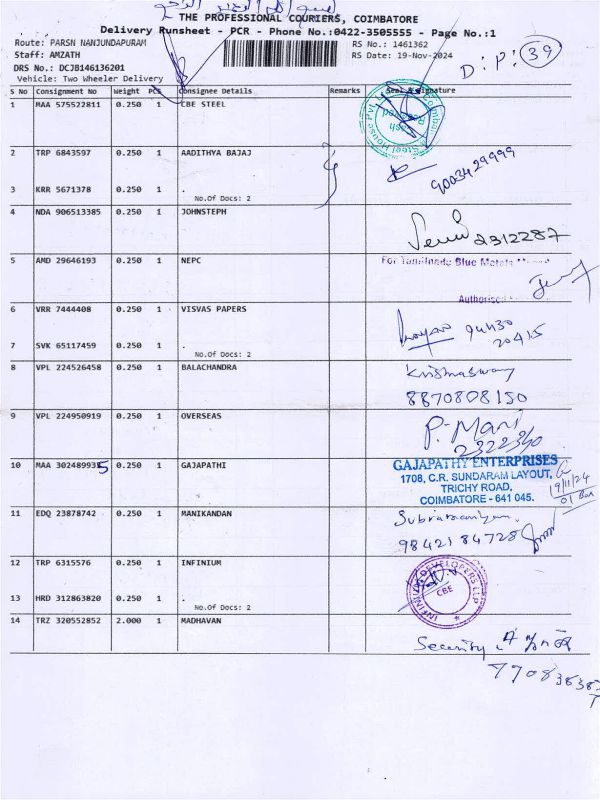 THE PROFESSIONAL COURIERS, COIMBATORE
Delivery Runsheet - PCR - Phone No.:0422-3505555 - Page No.:1
Route: PARSN NANJUNDAPURAM
Staff: AMZATH
DRS No.: DCJB146136201
Vehicle: Two Wheeler Delivery
RS No.: 1461362
RS Date: 19-Nov-2024
D:P: 39
S No Consignment No Weight PCS Consignee Details Remarks Seal & Signature
1 MAA 575522811 0.250 1 CBE STEEL
2 TRP 6843597 0.250 1 AADITHYA BAJAJ
9003429999
3 KRR 5671378 0.250 1 .
No.Of Docs: 2
4 NDA 906513385 0.250 1 JOHNSTEPH
2312287
5 AMD 29646193 0.250 1 NEPC
For Tamilnadu Blue Metals
Authorised
6 VRR 7444408 0.250 1 VISVAS PAPERS
20415
7 SVK 65117459 0.250 1 .
No.Of Docs: 2
8 VPL 224526458 0.250 1 BALACHANDRA
Krishnaswamy
8870808150
9 VPL 224950919 0.250 1 OVERSEAS
P. Mani
2322340
10 MAA 302489935 0.250 1 GAJAPATHI
GAJAPATHY ENTERPRISES
1708, C.R. SUNDARAM LAYOUT,
TRICHY ROAD,
COIMBATORE - 641 045.
19/11/24
11 EDQ 23878742 0.250 1 MANIKANDAN
Subramaniyan
98421 84728
12 TRP 6315576 0.250 1 INFINIUM
INFINIUM DEVELOPERS LLP
CBE
13 HRD 312863820 0.250 1 .
No.Of Docs: 2
14 TRZ 320552852 2.000 1 MADHAVAN
Security